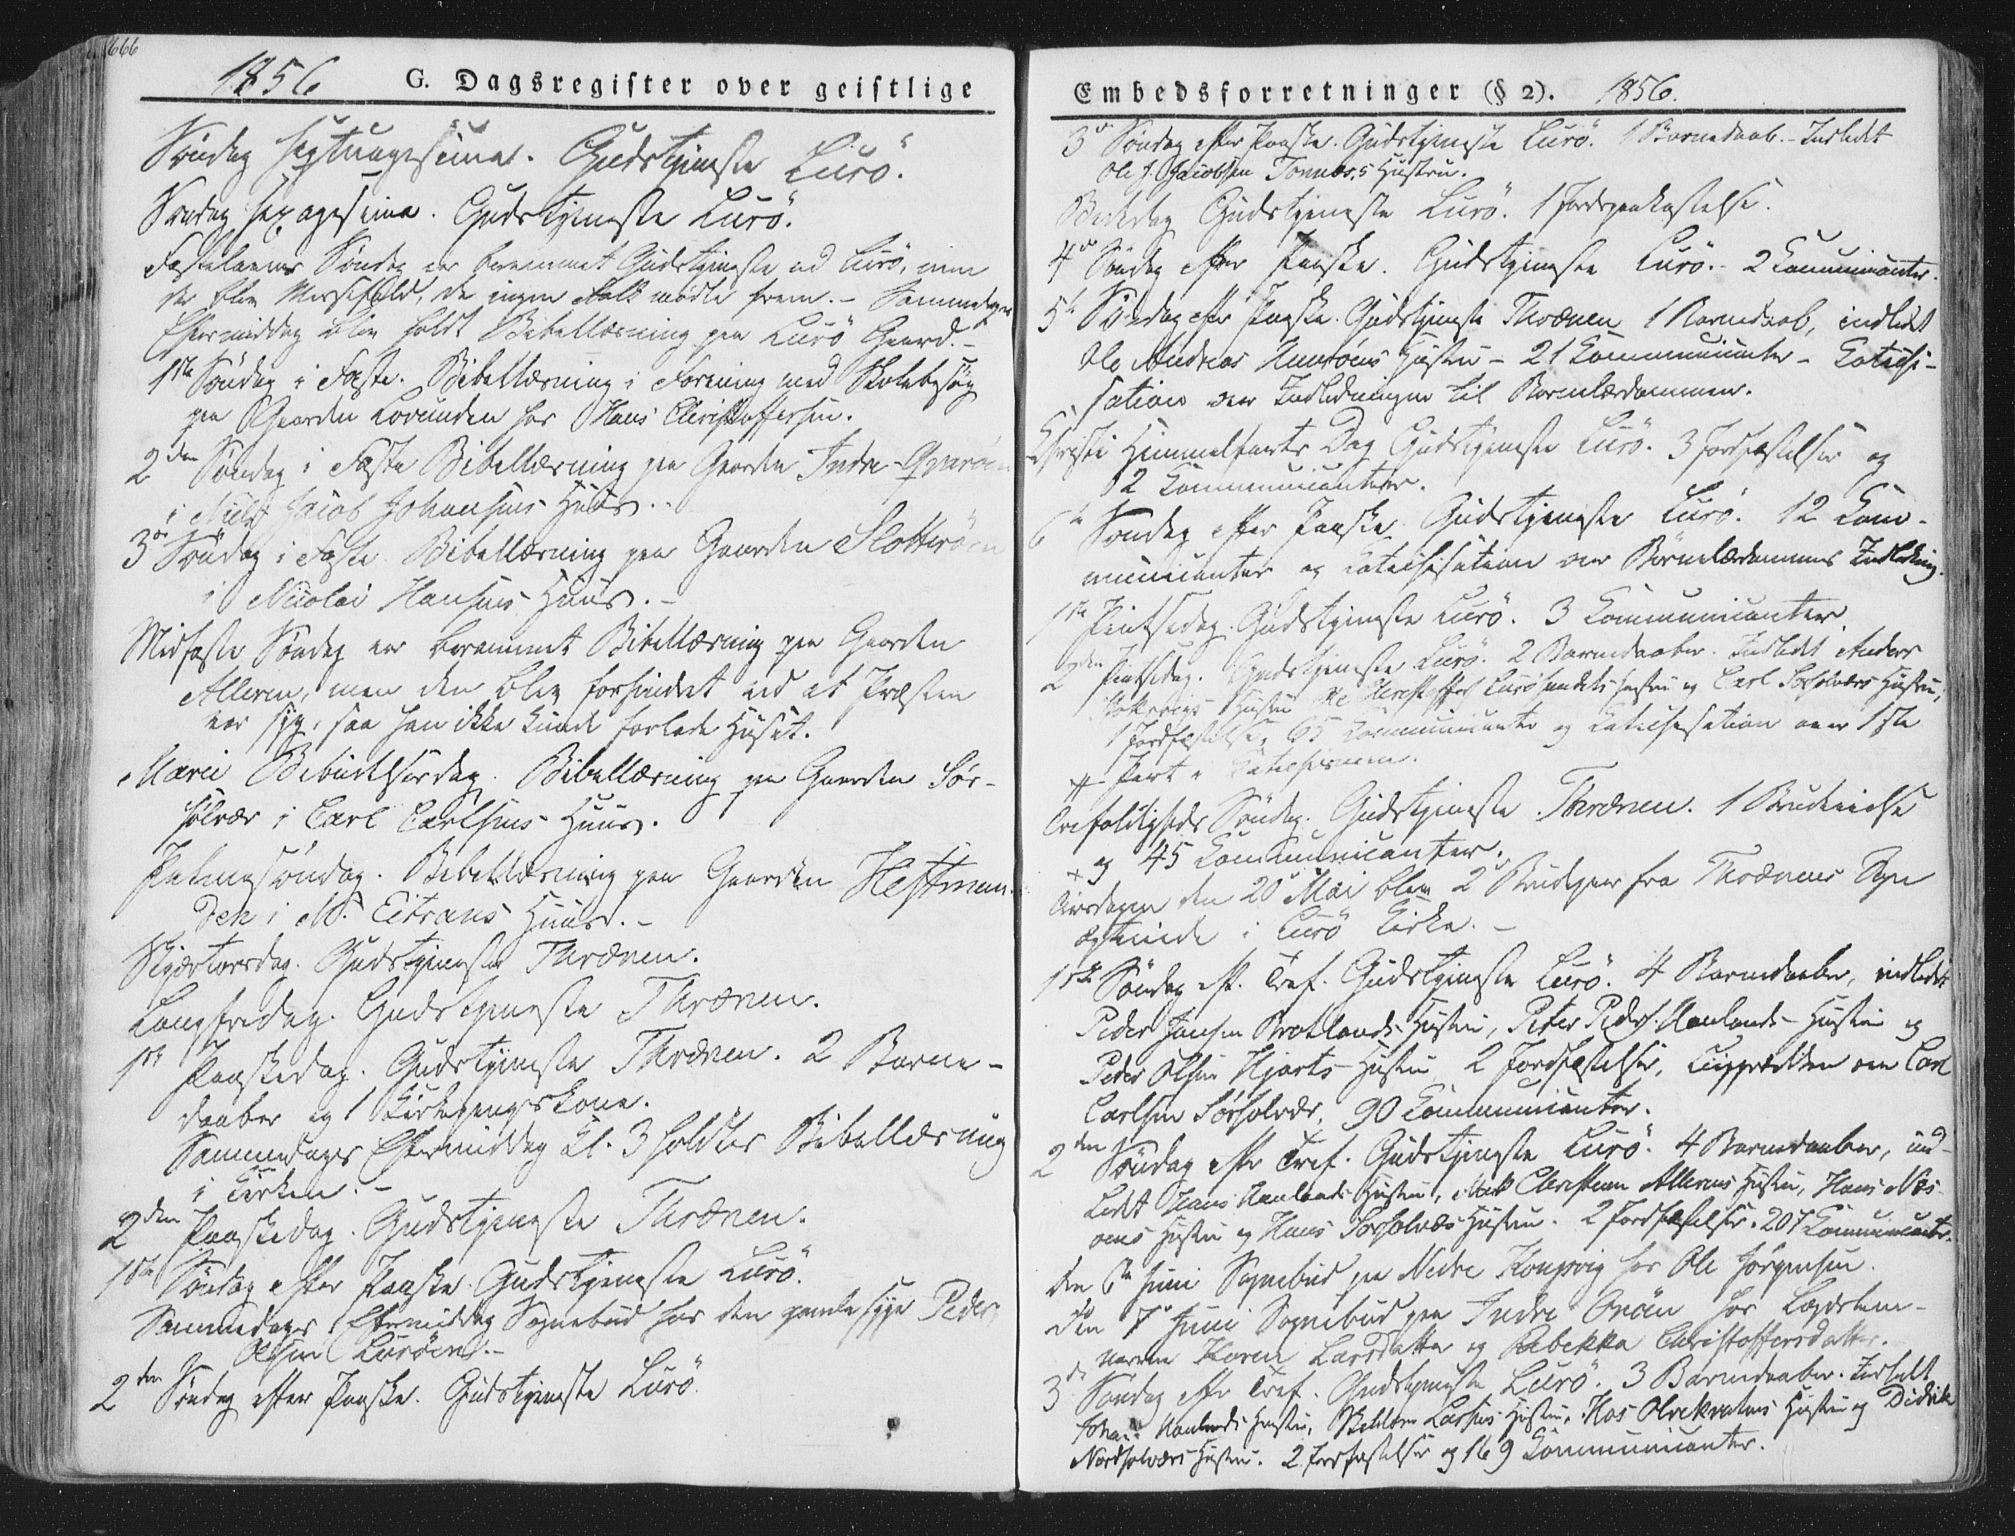 666
1856 G. Dagsregister over geistlige
Søndag Septuagesima. Gudstjeneste Lurö.
Søndag Sexagesima. Gudstjeneste Lurö.
Fastelavns Søndag var berammet Gudstjeneste ved Lurö, men
der blev Messefald, da ingen Folk mødte frem. – Sammedages
Eftermiddag blev holdt Bibellæsning paa Lurö Gaard. –
1ste Søndag i Faste. Bibellæsning i Forening med Skolebesøg
paa Gaarden Lovunden hos Hans Christoffersen.
2den Søndag i Faste Bibellæsning paa Gaarden Indre-Qvarøen
i Niels Jacob Johansens Huus. –
3die Søndag i Faste Bibellæsning paa Gaarden Slotterøen
i Nicolai Hansens Huus. –
Midfaste Søndag var berammet Bibellæsning paa Gaarden
Alleren, men den blev forhindret ved at Præsten
var syg, saa han ikke kunde forlade Huset.
Mariæ Bebudelsesdag. Bibellæsning paa Gaarden Sør-
solvær i Carl Carlsens Huus.
Palmesøndag. Bibellæsning paa Gaarden Hestmun-
den i M. Eitrans Huus. –
Skjærtorsdag. Gudstjeneste Thrænen.
Langfredag. Gudstjeneste Thrænen.
1ste Paaskedag. Gudstjeneste Thrænen. 2 Barne-
daaber og 1 Kirkegangskone.
Sammedages Eftermiddag Kl. 3 holdtes Bibellæsning
i Kirken. –
2den Paaskedag. Gudstjeneste Thrænen.
1ste Søndag efter Paaske. Gudstjeneste Lurö.
Sammedages Eftermiddag Sognebud hos den gamle syge Peder
Olsen Lurøen. –
2den Søndag efter Paaske. Gudstjeneste Lurö.
Embedsforretninger (§ 2). 1856.
3die Søndag efter Paaske. Gudstjeneste Lurö. 1 Barnedaab. – Indledt
Ole J. Jacobsen Tonnes's Hustru.
Bededag Gudstjeneste Lurö. 1 Jordpaakastelse.
4de Søndag efter Paaske. Gudstjeneste Lurö. – 2 Communicanter.
5te Søndag efter Paaske. Gudstjeneste Thrænen 1 Barnedaab, indledt
Ole Andreas Huusöens Hustru – 21 Kommunicanter – Catechi-
sation over Indledningen til Barnelærdommen.
Christi Himmelfarts Dag Gudstjeneste Lurö. 3 Jordfæstelser og
12 Kommunicanter.
6te Søndag efter Paaske Gudstjeneste Lurö. 12 Com-
municanter og Catechisation over Børnelærdommens Indledning.
1ste Pintsedag. Gudstjeneste Lurö. 3 Communicanter.
2den Pintsedag. Gudstjeneste Lurö. 2 Barnedaaber. Indledt Anders
Hustru Ole Christoffers Lurösandets Hustru og Carl Solværs Hustru,
1 Jordfæstelse, 65 Kommunicanter og Catechisation over 1ste
Part i Catechismen.
Trefoldigheds Søndag. Gudstjeneste Thrænen. 1 Brudevielse
og 45 Communicanter.
Tirsdagen den 20 Mai blev 2 Brudepar fra Thrænens Sogn
egteviede i Lurö Kirke. –
1ste Søndag eft. Tref. Gudstjeneste Lurö. 4 Barnedaaber, indledt
Peder Jansen Bratlands Hustru, Peter Peders. Haalands Hustru og
Peder Olsen Hjarts Hustru 2 Jordfæstelser, Liigprædiken over Carl
Carlsen Sørsolvær, 90 Communicanter.
2den Søndag efter Tref. Gudstjeneste Lurö. 4 Barnedaaber, ind-
ledt Hans Haalands Hustru, Christian Allerens Hustru, Hans Næs-
öens Hustru og Hans Sørsolværs Hustru. 2 Jordfæstelser. 207 Communicanter.
Den 6te Juni Sognebud paa Nedre Kongsvig hos Ole Jørgensen.
Den 7de Juni Sognebud paa Indre Onøen hos Lægdslem-
merne Karen Larsdatter og Rebekka Christoffersdatter.
3die Søndag efter Tref. Gudstjeneste Lurö. 3 Barnedaaber. Indledt
Haalands Hustru, Larsens Hustru, Hustru og Didrik
Nordsolværs Hustru. 2 Jordfæstelser og 169 Kommunicanter.